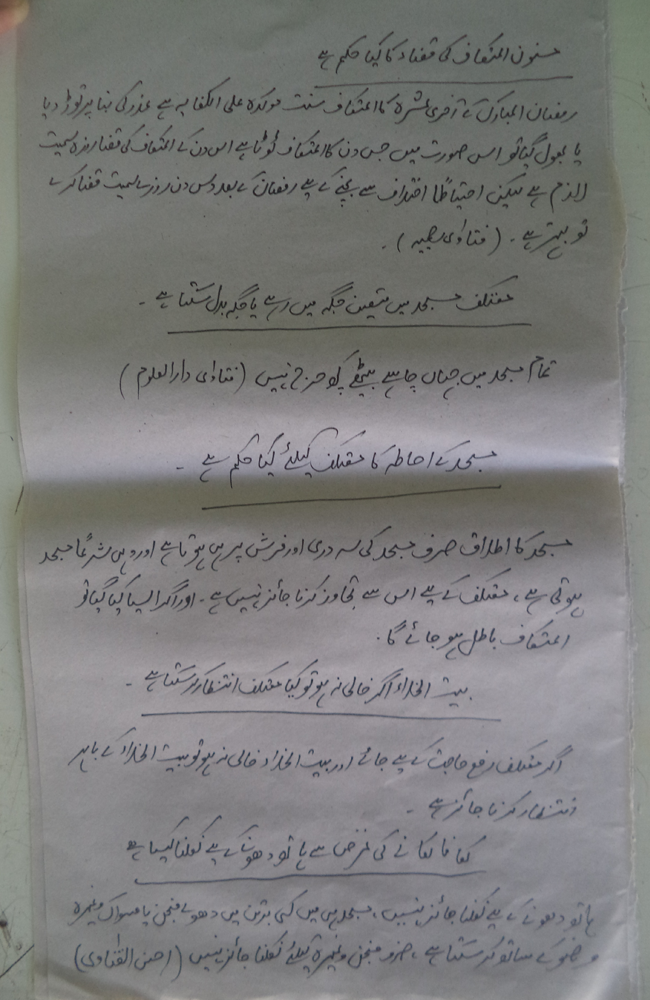 مسنون اعتکاف کی قضاء کا کیا حکم ہے
رمضان المبارک کے آخری عشرہ کا اعتکاف سنت موکدہ علی الکفایہ ہے عذر کی بنا پر توڑ دیا
یا بھول گیا تو اس صورت میں جس دن کا اعتکاف ٹوٹا ہے اس دن کے اعتکاف کی قضا روزہ سمیت
لازم ہے لیکن احتیاطاً اختلاف سے بچنے کے لیے رمضان کے بعد دس دن روزے سمیت قضا کرے
تو بہتر ہے۔ (فتاوی رحیمیہ)۔
معتکف مسجد میں متعین جگہ میں رہے یا جگہ بدل سکتا ہے۔
تمام مسجد میں جہاں چاہے بیٹھے کچھ حرج نہیں (فتاوی دارالعلوم)
مسجد کے احاطہ کا معتکف کیلئے کیا حکم ہے۔
مسجد کا اطلاق صرف مسجد کی سہ دری اور فرش پر ہی ہوتا ہے اور وہی شرعاً مسجد
ہوتی ہے، معتکف کے لیے اس سے تجاوز کرنا جائز نہیں ہے۔ اور اگر ایسا کیا گیا تو
اعتکاف باطل ہو جائے گا۔
بیت الخلاء اگر خالی نہ ہو تو کیا معتکف انتظار کر سکتا ہے۔
اگر معتکف رفع حاجت کے لیے جائے اور بیت الخلاء خالی نہ ہو تو بیت الخلاء کے باہر
انتظار کرنا جائز ہے۔
کھانا کھانے کی غرض سے ہاتھ دھونے کے لیے نکلنا کیسا ہے
ہاتھ دھونے کے لیے نکلنا جائز نہیں، مسجد ہی میں کسی برتن میں دھولے منجن یا مسواک وغیرہ
وضو کے ساتھ کر سکتا ہے، صرف منجن وغیرہ کیلئے نکلنا جائز نہیں (احسن الفتاوی)